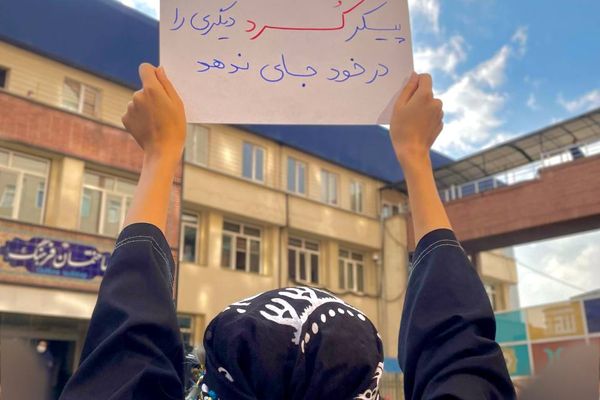 پیکر کُرد دیگری را
در خود جای ندهد
ساختمان فرهنگ